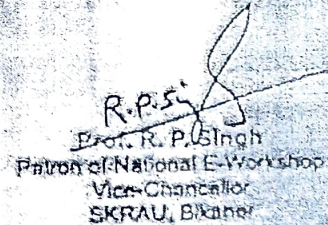 R.P.Si
Prof. R. P. Singh
Patron of National E-Workshop
Vice-Chancellor
SKRAU, Bikaner